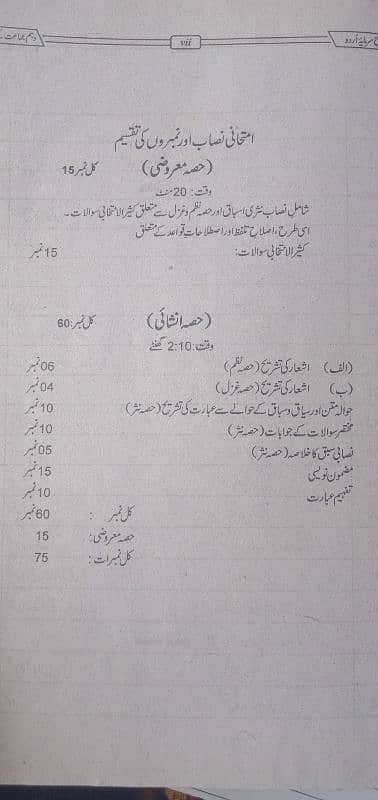 سرمایۂ اُردو
vii
دہم جماعت
امتحانی نصاب اور نمبروں کی تقسیم
(حصہ معروضی) کل نمبر 15
وقت: 20 منٹ
شامل نصاب نثری اسباق اور حصہ نظم و غزل سے متعلق کثیر الانتخابی سوالات۔
اسی طرح، اصلاح تلفظ اور اصطلاحاتِ قواعد کے متعلق
کثیر الانتخابی سوالات: 15 نمبر
(حصہ انشائی) کل نمبر: 60
وقت: 2:10 گھنٹے
(الف) اشعار کی تشریح (حصہ نظم) 06 نمبر
(ب) اشعار کی تشریح (حصہ غزل) 04 نمبر
حوالہ متن اور سیاق و سباق کے حوالے سے عبارت کی تشریح (حصہ نثر) 10 نمبر
مختصر سوالات کے جوابات (حصہ نثر) 10 نمبر
نصابی سبق کا خلاصہ (حصہ نثر) 05 نمبر
مضمون نویسی 15 نمبر
تفہیم عبارت 10 نمبر
کل نمبر : 60 نمبر
حصہ معروضی: 15
کل نمبرات : 75